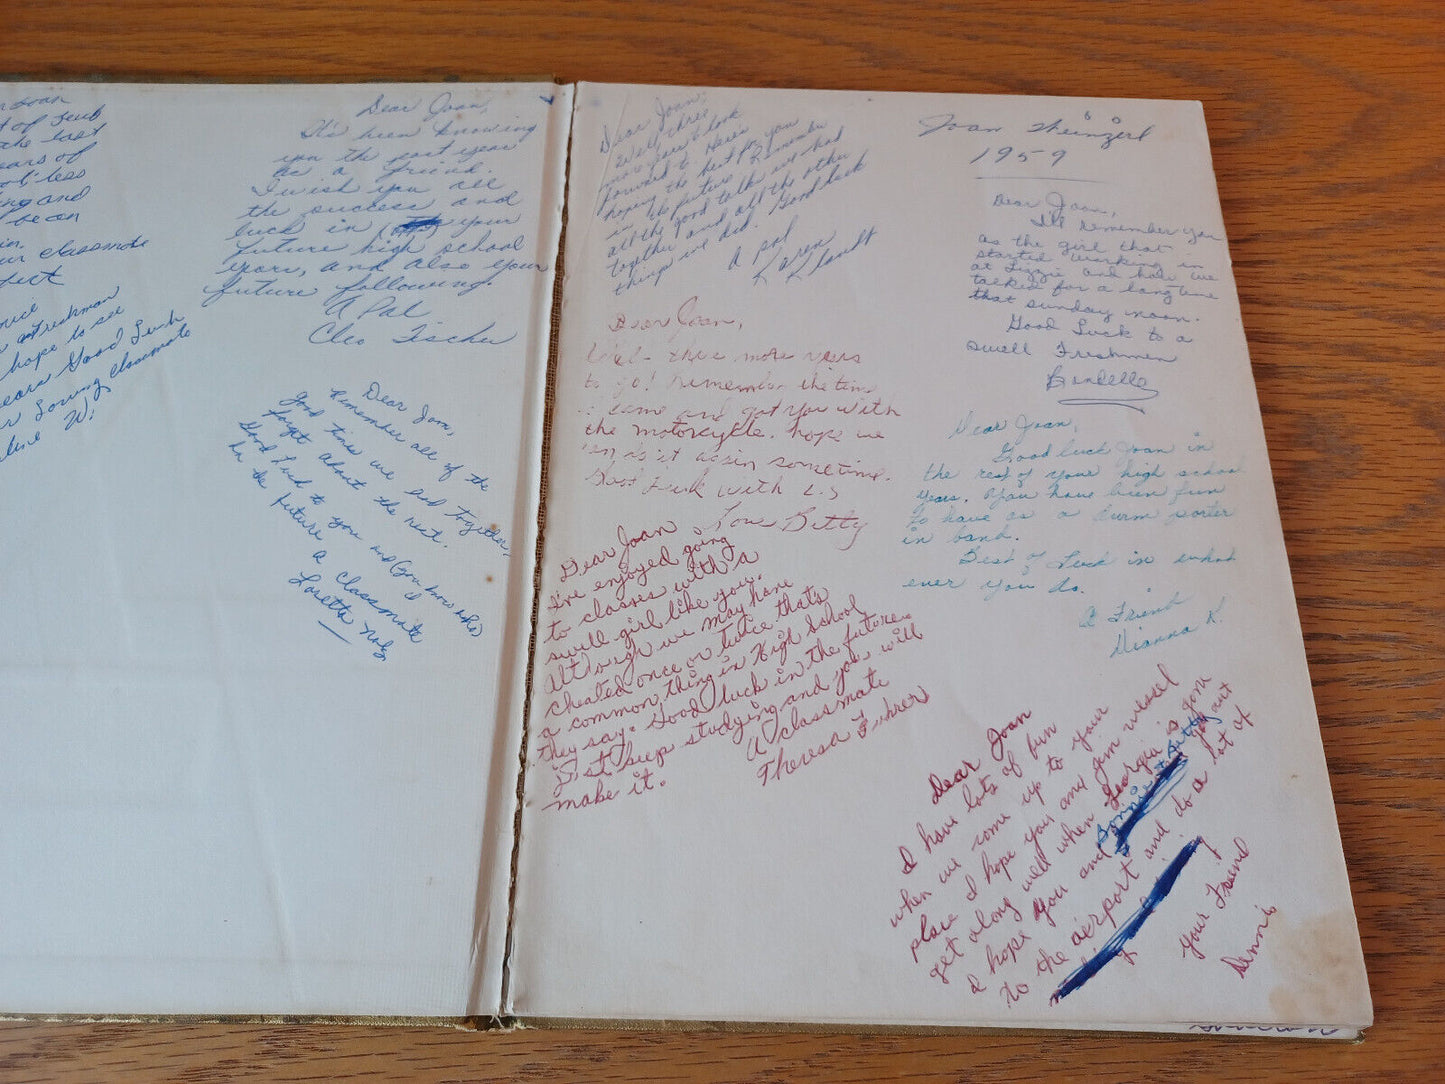 Joan
of
the last
years of
less
and
be an
classmate
freshman
hope to see
Good Luck
Loving classmate
W.
Dear Joan,
It's been knowing
you the past year
as a friend.
I wish you all
the success and
luck in your
future high school
years, and also your
future following.
A Pal
Cleo Tischer
Dear Joan,
Remember all of the
good times we had together,
forget about the rest.
Good Luck to you and (you know who)
in the future
a classmate
Loretta
Dear Joan,
Well three
more years to look
forward to. Here's
hoping the best for you
in the future. Remember
all the good talks we had
together and all the other
things we did. Good luck
A pal
Karen
Dear Joan,
Well- three more years
to go! Remember the time
I came and got you with
the motorcycle. hope we
can do it again sometime.
Good Luck with L.S
Love Betty
Dear Joan
I've enjoyed going
to classes with a
swell girl like you.
Although we may have
cheated once or twice that's
a common thing in High School
they say. Good luck in the future.
Just keep studying and you will
make it.
A classmate
Theresa Fuhrer
Joan
1959
Dear Joan,
I'll remember you
as the girl that
started working in
at Lizzie and how we
talked for a long time
that sunday
Good Luck to a
swell Freshmen
Dear Joan,
Good luck Joan in
the rest of your high school
years. You have been fun
to have as a drum porter
in band.
Best of Luck in what
ever you do.
A Friend
Dianna K.
Dear Joan
I have lots of fun
when we come up to your
place I hope you and Jim
get along well when Georgia is gone
I hope you and Bonnie you out
to the airport and do a lot of
your Friend
Dennis